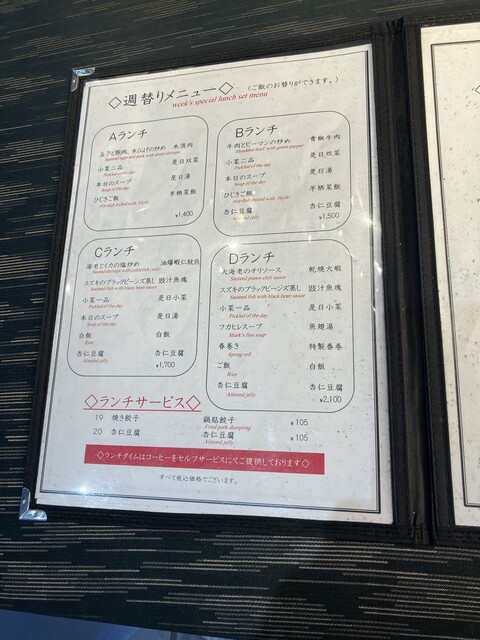 ◇週替りメニュー◇ (ご飯のお替りができます。)
week's special lunch set menu
Aランチ
玉子と豚肉、きくらげの炒め 木須肉
小菜二品 是日双菜
Pickled of the day
本日のスープ 是日湯
Soup of the day
ひじきご飯 羊栖菜飯
¥1,400
Bランチ
牛肉とピーマンの炒め 青椒牛肉
Shredded beef with green pepper
小菜二品 是日双菜
Pickled of the day
本日のスープ 是日湯
Soup of the day
ひじきご飯 羊栖菜飯
杏仁豆腐 杏仁豆腐
Almond jelly
¥1,500
Cランチ
海老とイカの塩炒め 油爆蝦仁
スズキのブラックビーンズ蒸し 豉汁魚塊
Sauteed fish with black bean sauce
小菜一品 是日小菜
Pickled of the day
本日のスープ 是日湯
Soup of the day
白飯 白飯
Rice
杏仁豆腐 杏仁豆腐
Almond jelly
¥1,700
Dランチ
大海老のチリソース 乾焼大蝦
Sauteed prawn chili sauce
スズキのブラックビーンズ蒸し 豉汁魚塊
Sauteed fish with black bean sauce
小菜一品 是日小菜
Pickled of the day
フカヒレスープ 魚翅湯
Shark's fins soup
春巻き 特製春巻
Spring roll
ご飯 白飯
Rice
杏仁豆腐 杏仁豆腐
Almond jelly
¥2,100
◇ランチサービス◇
19 焼き餃子 鍋貼餃子 ¥105
Fried pork dumpling
20 杏仁豆腐 杏仁豆腐 ¥105
Almond jelly
◇ランチタイムはコーヒーをセルフサービスにてご提供しております◇
すべて税込価格でございます。